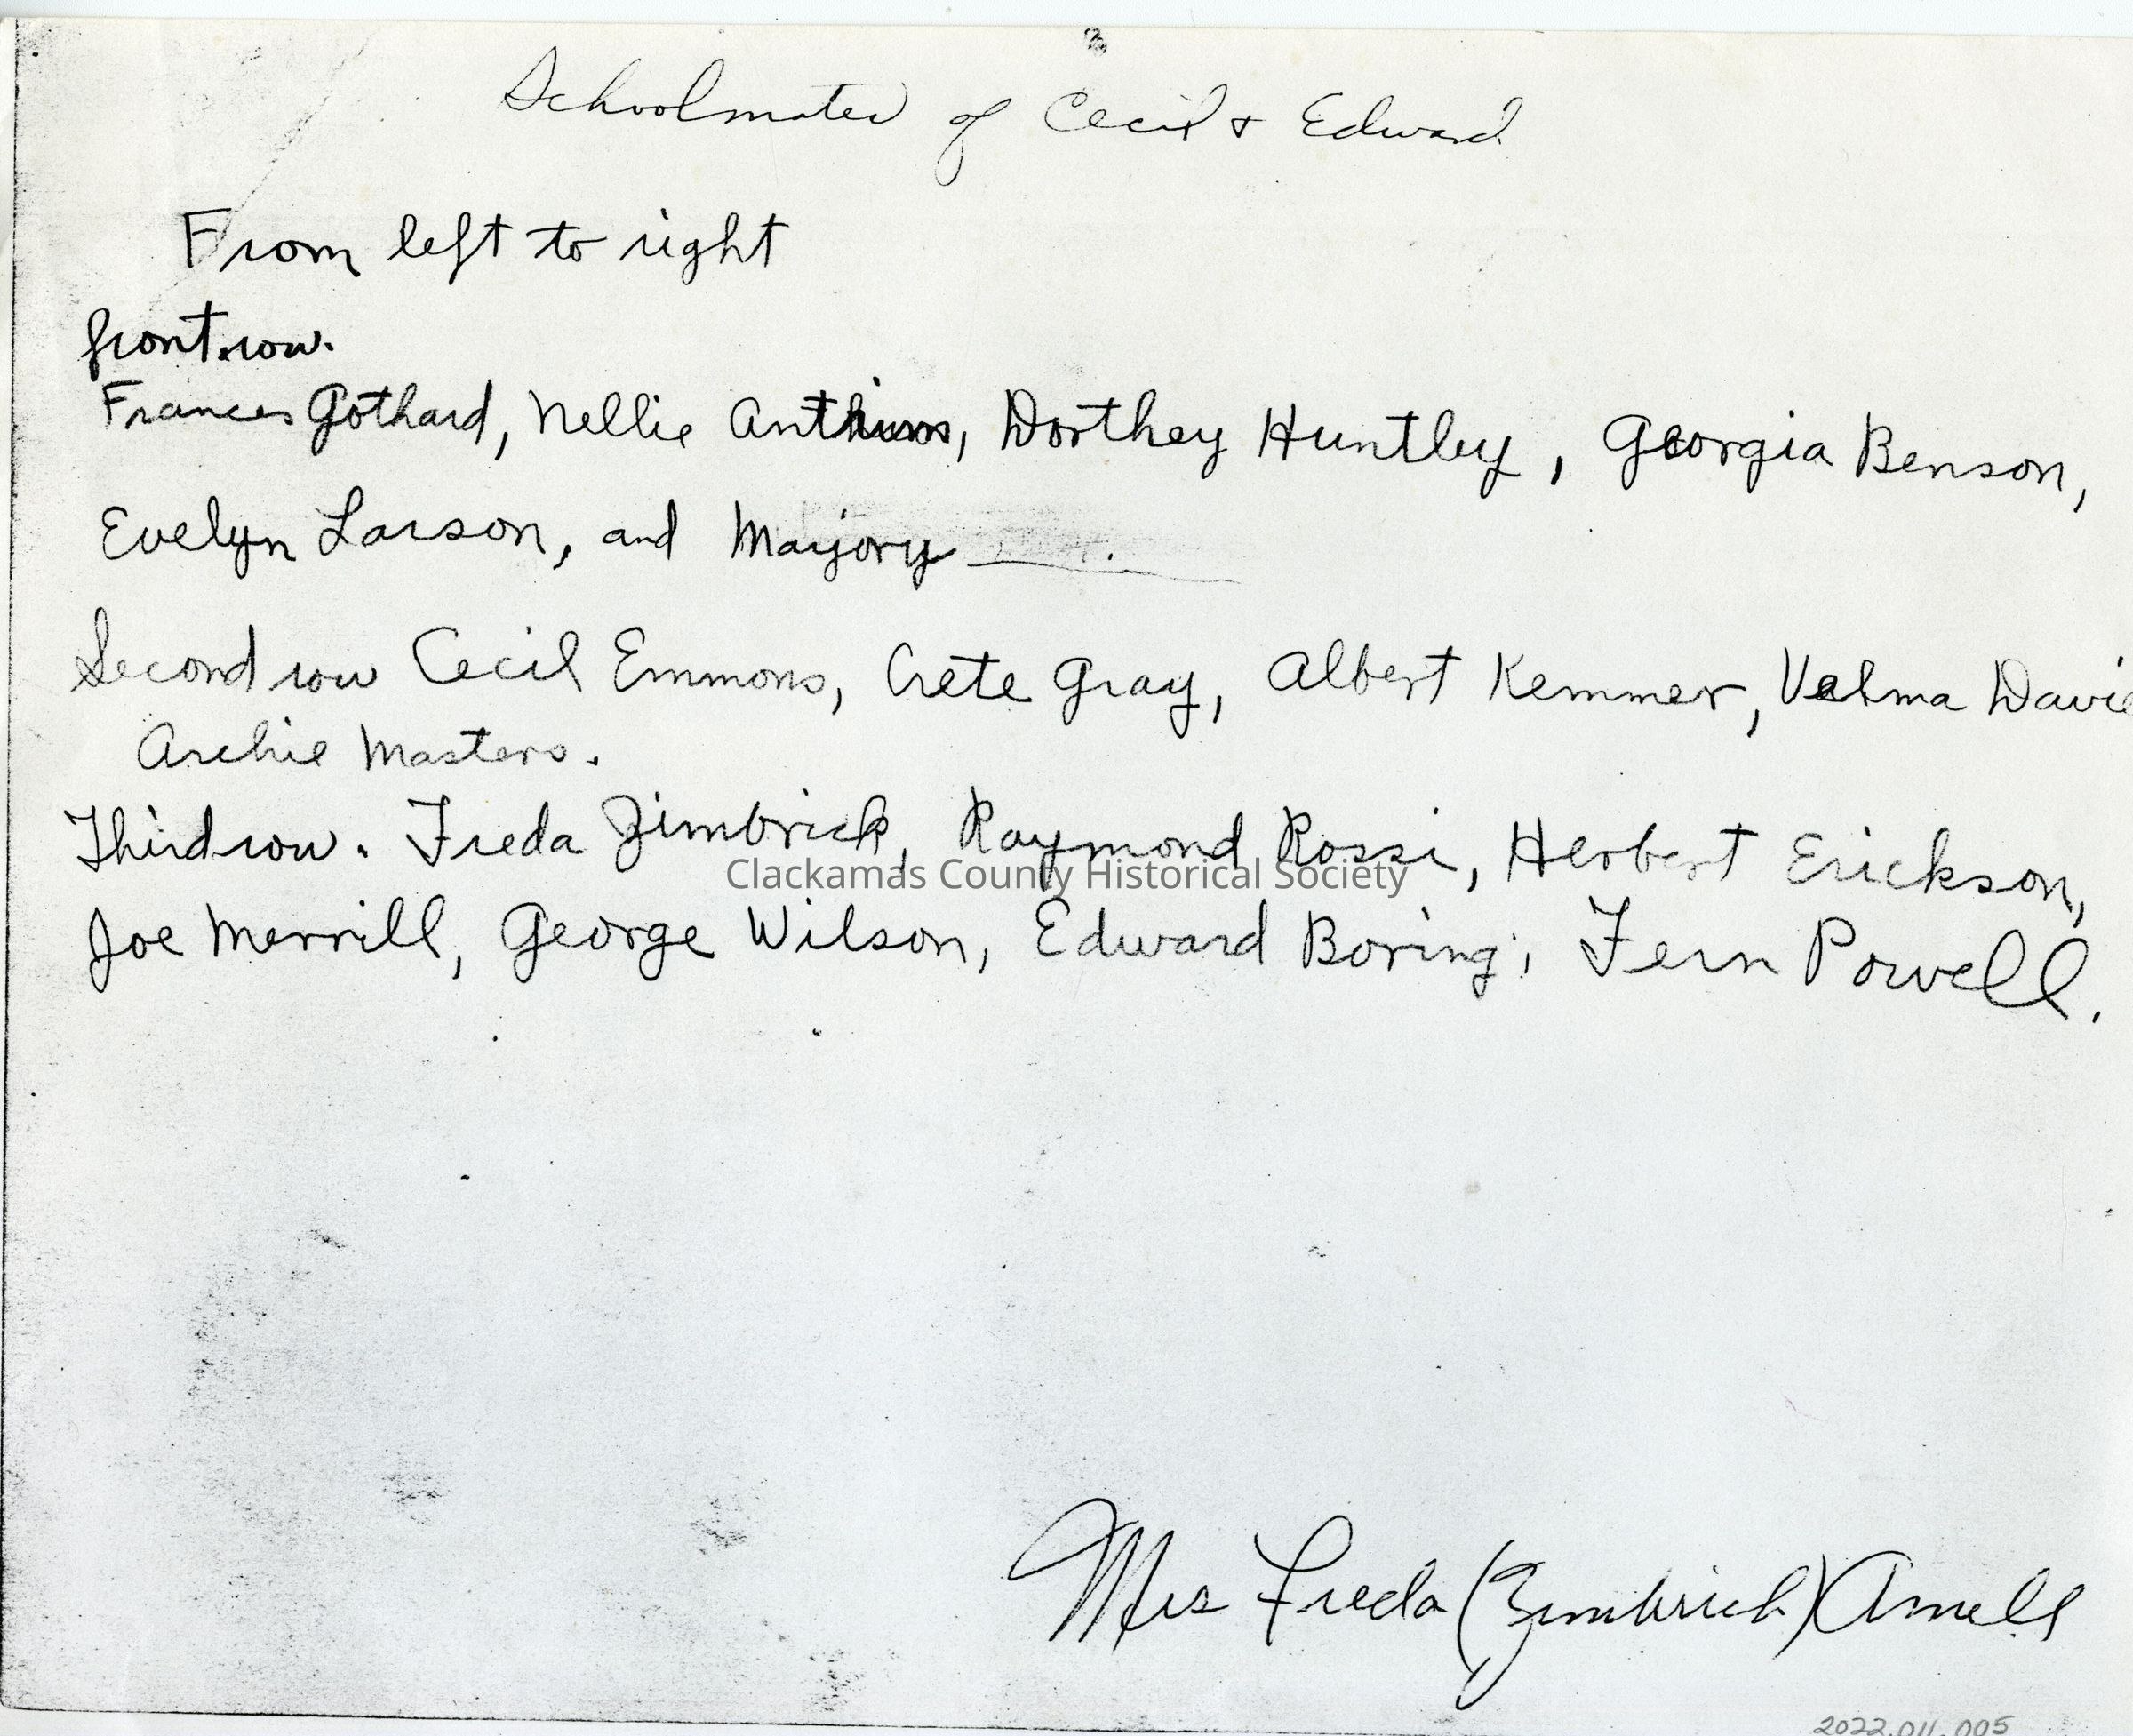 Schoolmates of Cecil & Edward
From left to right
front row.
Frances Gothard, Nellie Dorthey Huntley, Georgia Benson,
Evelyn Larson, and Marjory ____.
Second row Cecil Emmons, Crete Gray, Albert Kemmer, Velma Davie
Archie Masters.
Third row. Freda Zimbrick, Raymond Rossi, Herbert Erickson,
Clackamas County Historical Society
Joe Merrill, George Wilson, Edward Boring; Fern Powell.
Mrs Freda (Zimbrick)
2022.011.005